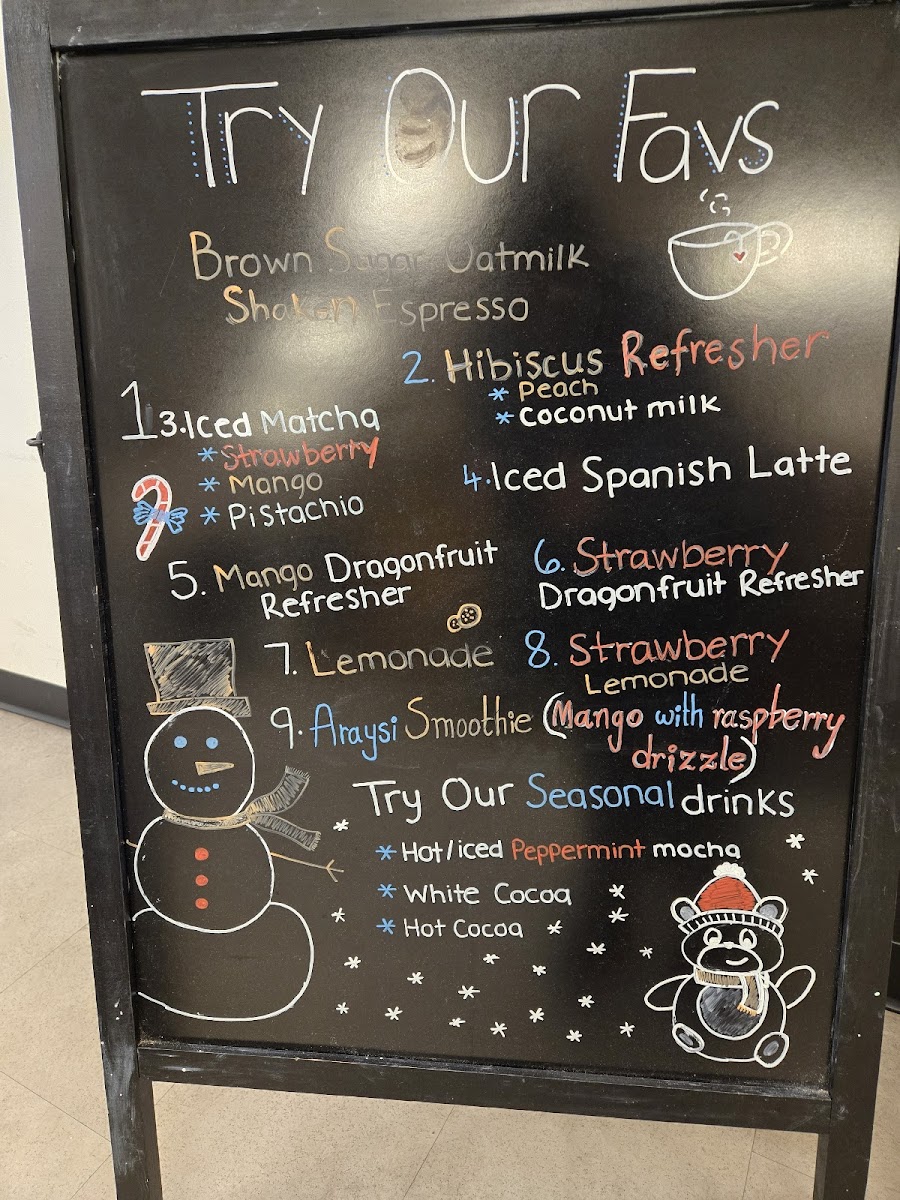 Try Our Favs
Brown Sugar Oatmilk
Shaken Espresso
1
2. Hibiscus Refresher
* Peach
* Coconut milk
3. Iced Matcha
* Strawberry
* Mango
* Pistachio
4. Iced Spanish Latte
5. Mango Dragonfruit
Refresher
6. Strawberry
Dragonfruit Refresher
7. Lemonade
8. Strawberry
Lemonade
9. Araysi Smoothie (Mango with raspberry
drizzle)
Try Our Seasonal drinks
* Hot/iced Peppermint mocha
* White Cocoa
* Hot Cocoa